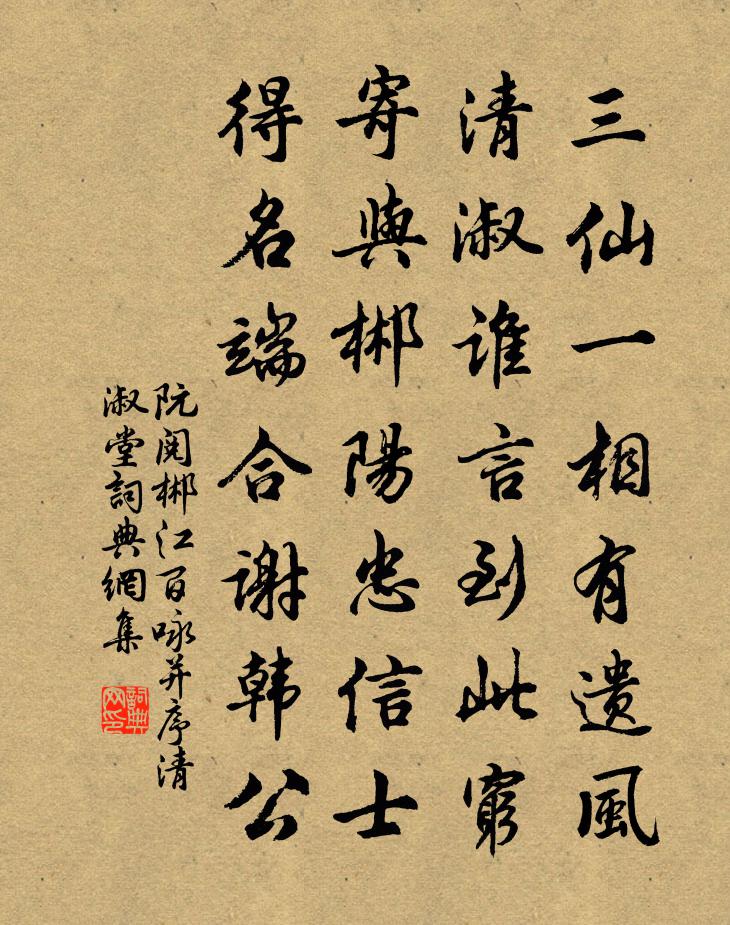 三仙一相有遺風
清淑誰言到此窮
寄與郴陽忠信士
得名端合謝韓公
阮閱郴江百咏并序清
淑堂詞典網集
詞典网印